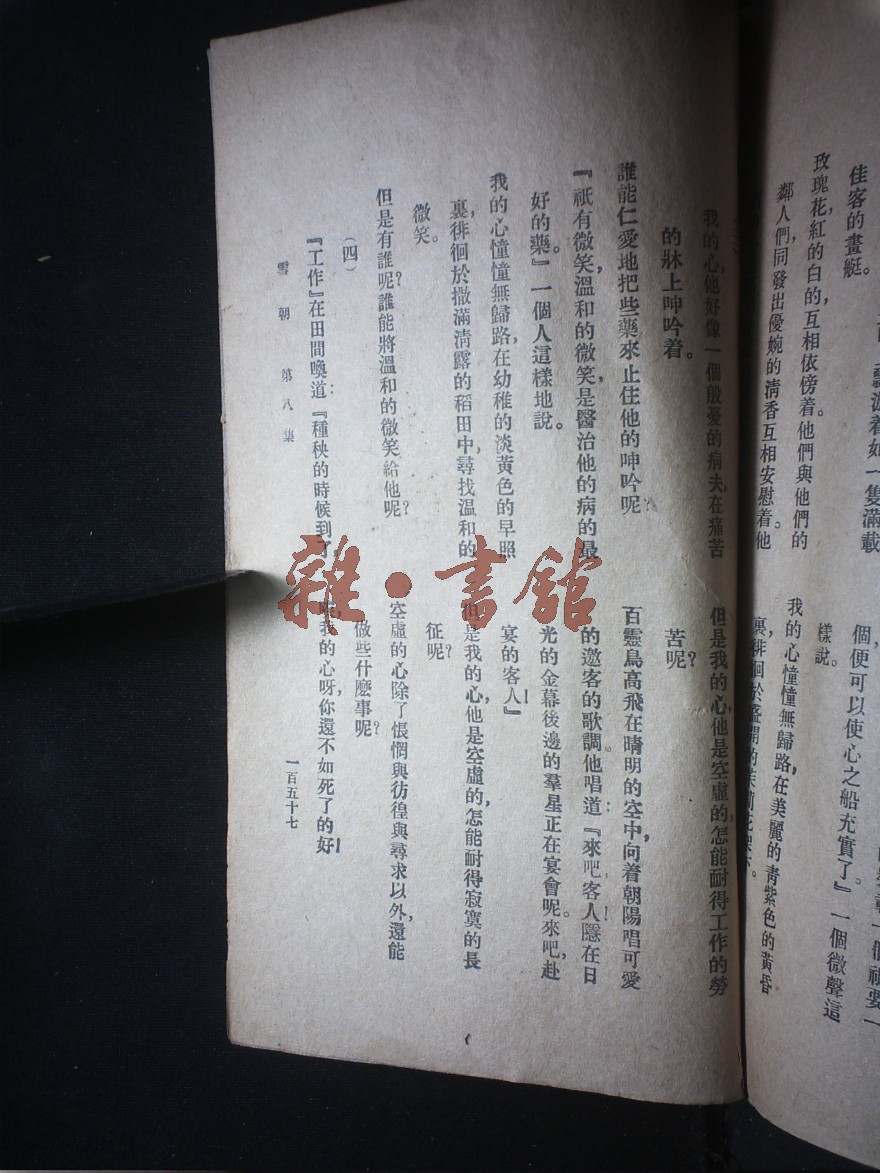 佳客的畫艇。
玫瑰花,紅的白的,互相依傍着。他們與他們的
鄰人們,同發出優婉的清香互相安慰着。他
飄游着如一隻滿載
個便可以使心之船充實了。』一個微聲這
樣說。
我的心憧憧無歸路,在美麗的青紫色的黃昏
裏,徘徊於盛開的
我的心,他好像一個殷憂的病夫,在痛苦
的牀上呻吟着。
誰能仁愛地把些藥來止住他的呻吟呢?
『祇有微笑,溫和的微笑,是醫治他的病的最
好的藥。』一個人這樣地說。
我的心憧憧無歸路,在幼稚的淡黃色的早照
裏,徘徊於撒滿清露的稻田中,尋找溫和的
微笑。
但是有誰呢?誰能將溫和的微笑給他呢?
(四)
『工作』在田間喚道:『種秧的時候到了
但是我的心,他是空虛的,怎能耐得工作的勞
苦呢?
百靈鳥高飛在晴明的空中,向着朝陽唱可愛
的邀客的歌調。他唱道:『來吧,客人!隱在日
光的金幕後邊的羣星正在宴會呢。來吧,赴
宴的客人!』
但是我的心,他是空虛的,怎能耐得寂寞的長
征呢?
空虛的心除了悵惘與彷徨與尋求以外,還能
做些什麽事呢?
我的心呀,你還不如死了的好!
雪朝 第八集
一百五十七
雜·書館